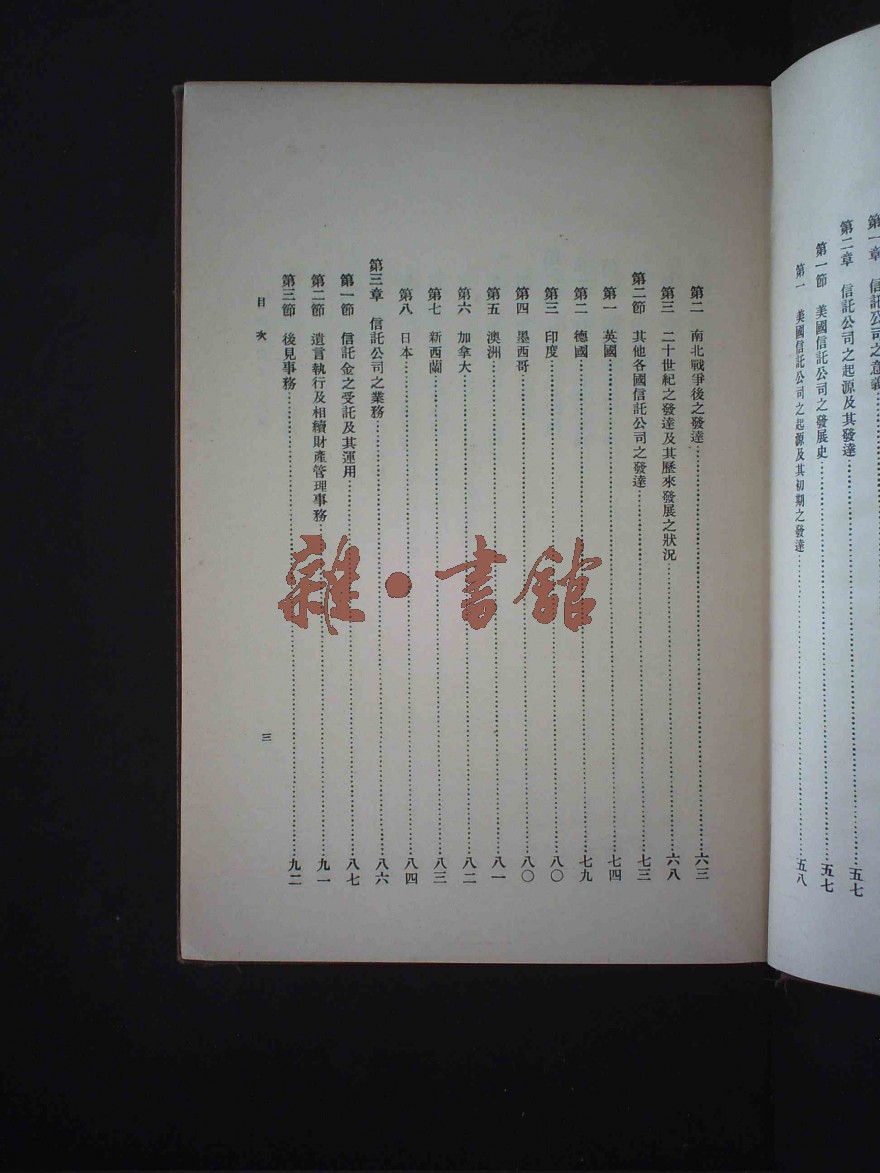 第一章　信託公司之意義
第二章　信託公司之起源及其發達……五七
第一節　美國信託公司之發展史……五七
第一　美國信託公司之起源及其初期之發達……五八
第二　南北戰爭後之發達……六三
第三　二十世紀之發達及其歷來發展之狀況……六八
第二節　其他各國信託公司之發達……七三
第一　英國……七四
第二　德國……七九
第三　印度……八〇
第四　墨西哥……八〇
第五　澳洲……八一
第六　加拿大……八二
第七　新西蘭……八三
第八　日本……八四
第三章　信託公司之業務……八六
第一節　信託金之受託及其運用……八七
第二節　遺言執行及相續財產管理事務……九一
第三節　後見事務……九二
目次
三
雜·書館